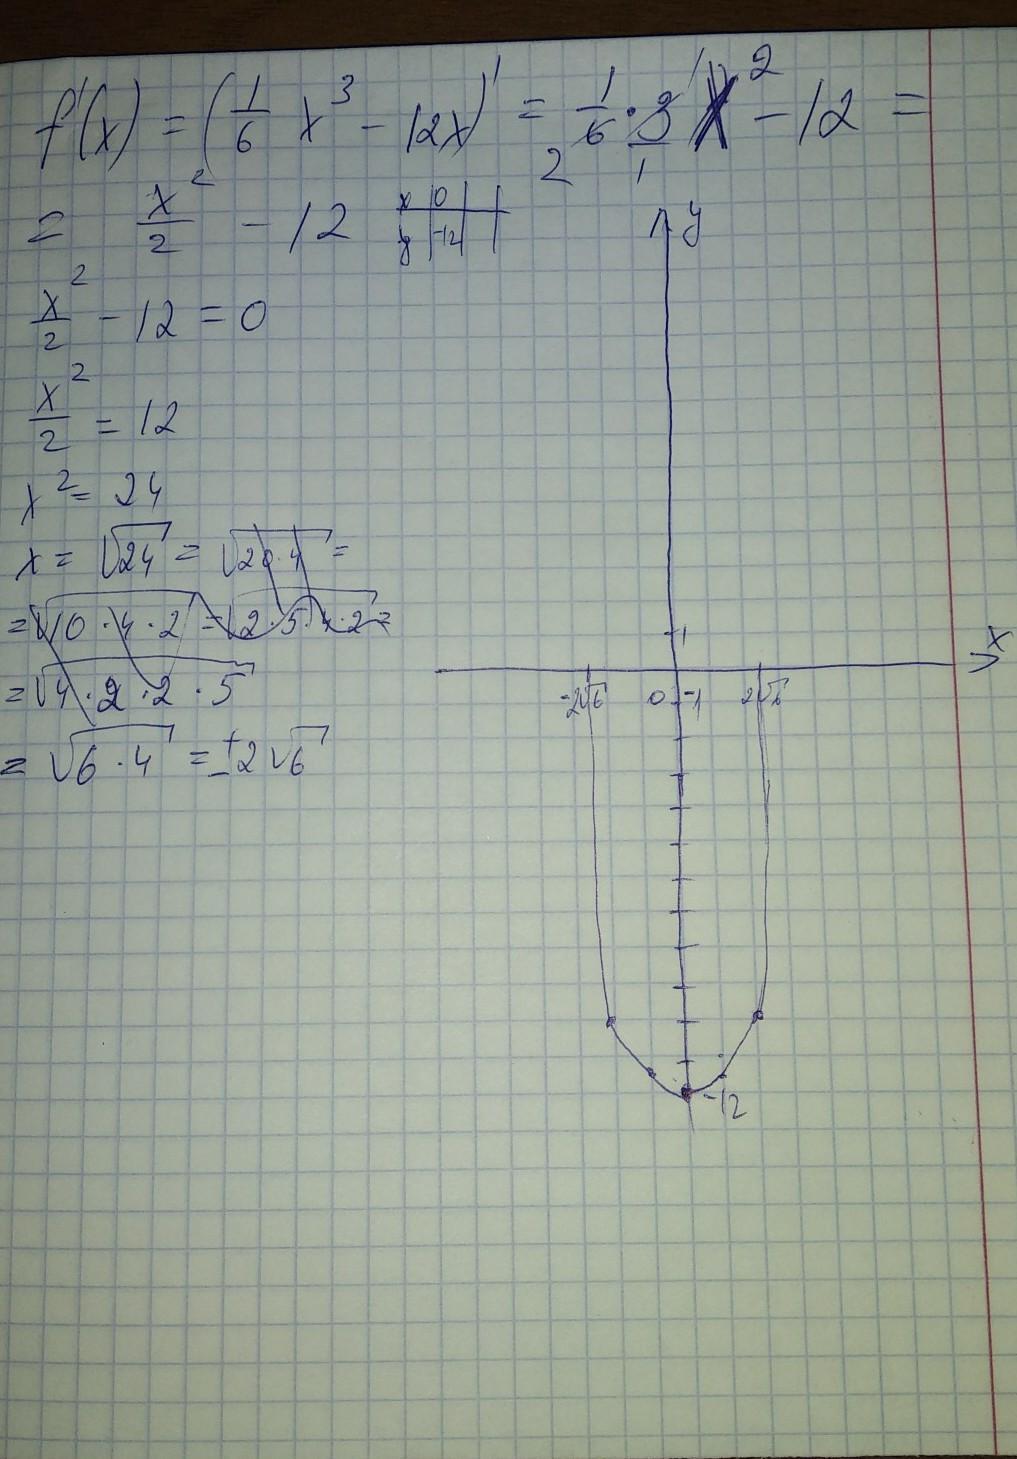 f'(x) = (1/6 x³ - 12x)' = 1/6 · 3 x² - 12 =
= x²/2 - 12
x 0
y -12
x²/2 - 12 = 0
x²/2 = 12
x² = 24
x = √24 = √20·4 =
= √10·4·2 = √2·5·4·2 =
= √4·2·2·5
= √6·4 = ±2√6
y
1
x
-2√6 0 -1 2√6
-12